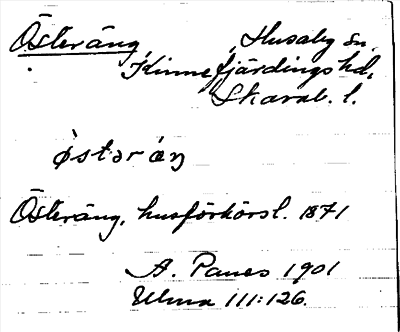 Österäng, Husaby sn.
Kinnefjärdings hd.
Skarab. l.
östəräŋ
Österäng, husförhörsl. 1871
A. Panes 1901
Ulma 111:126.